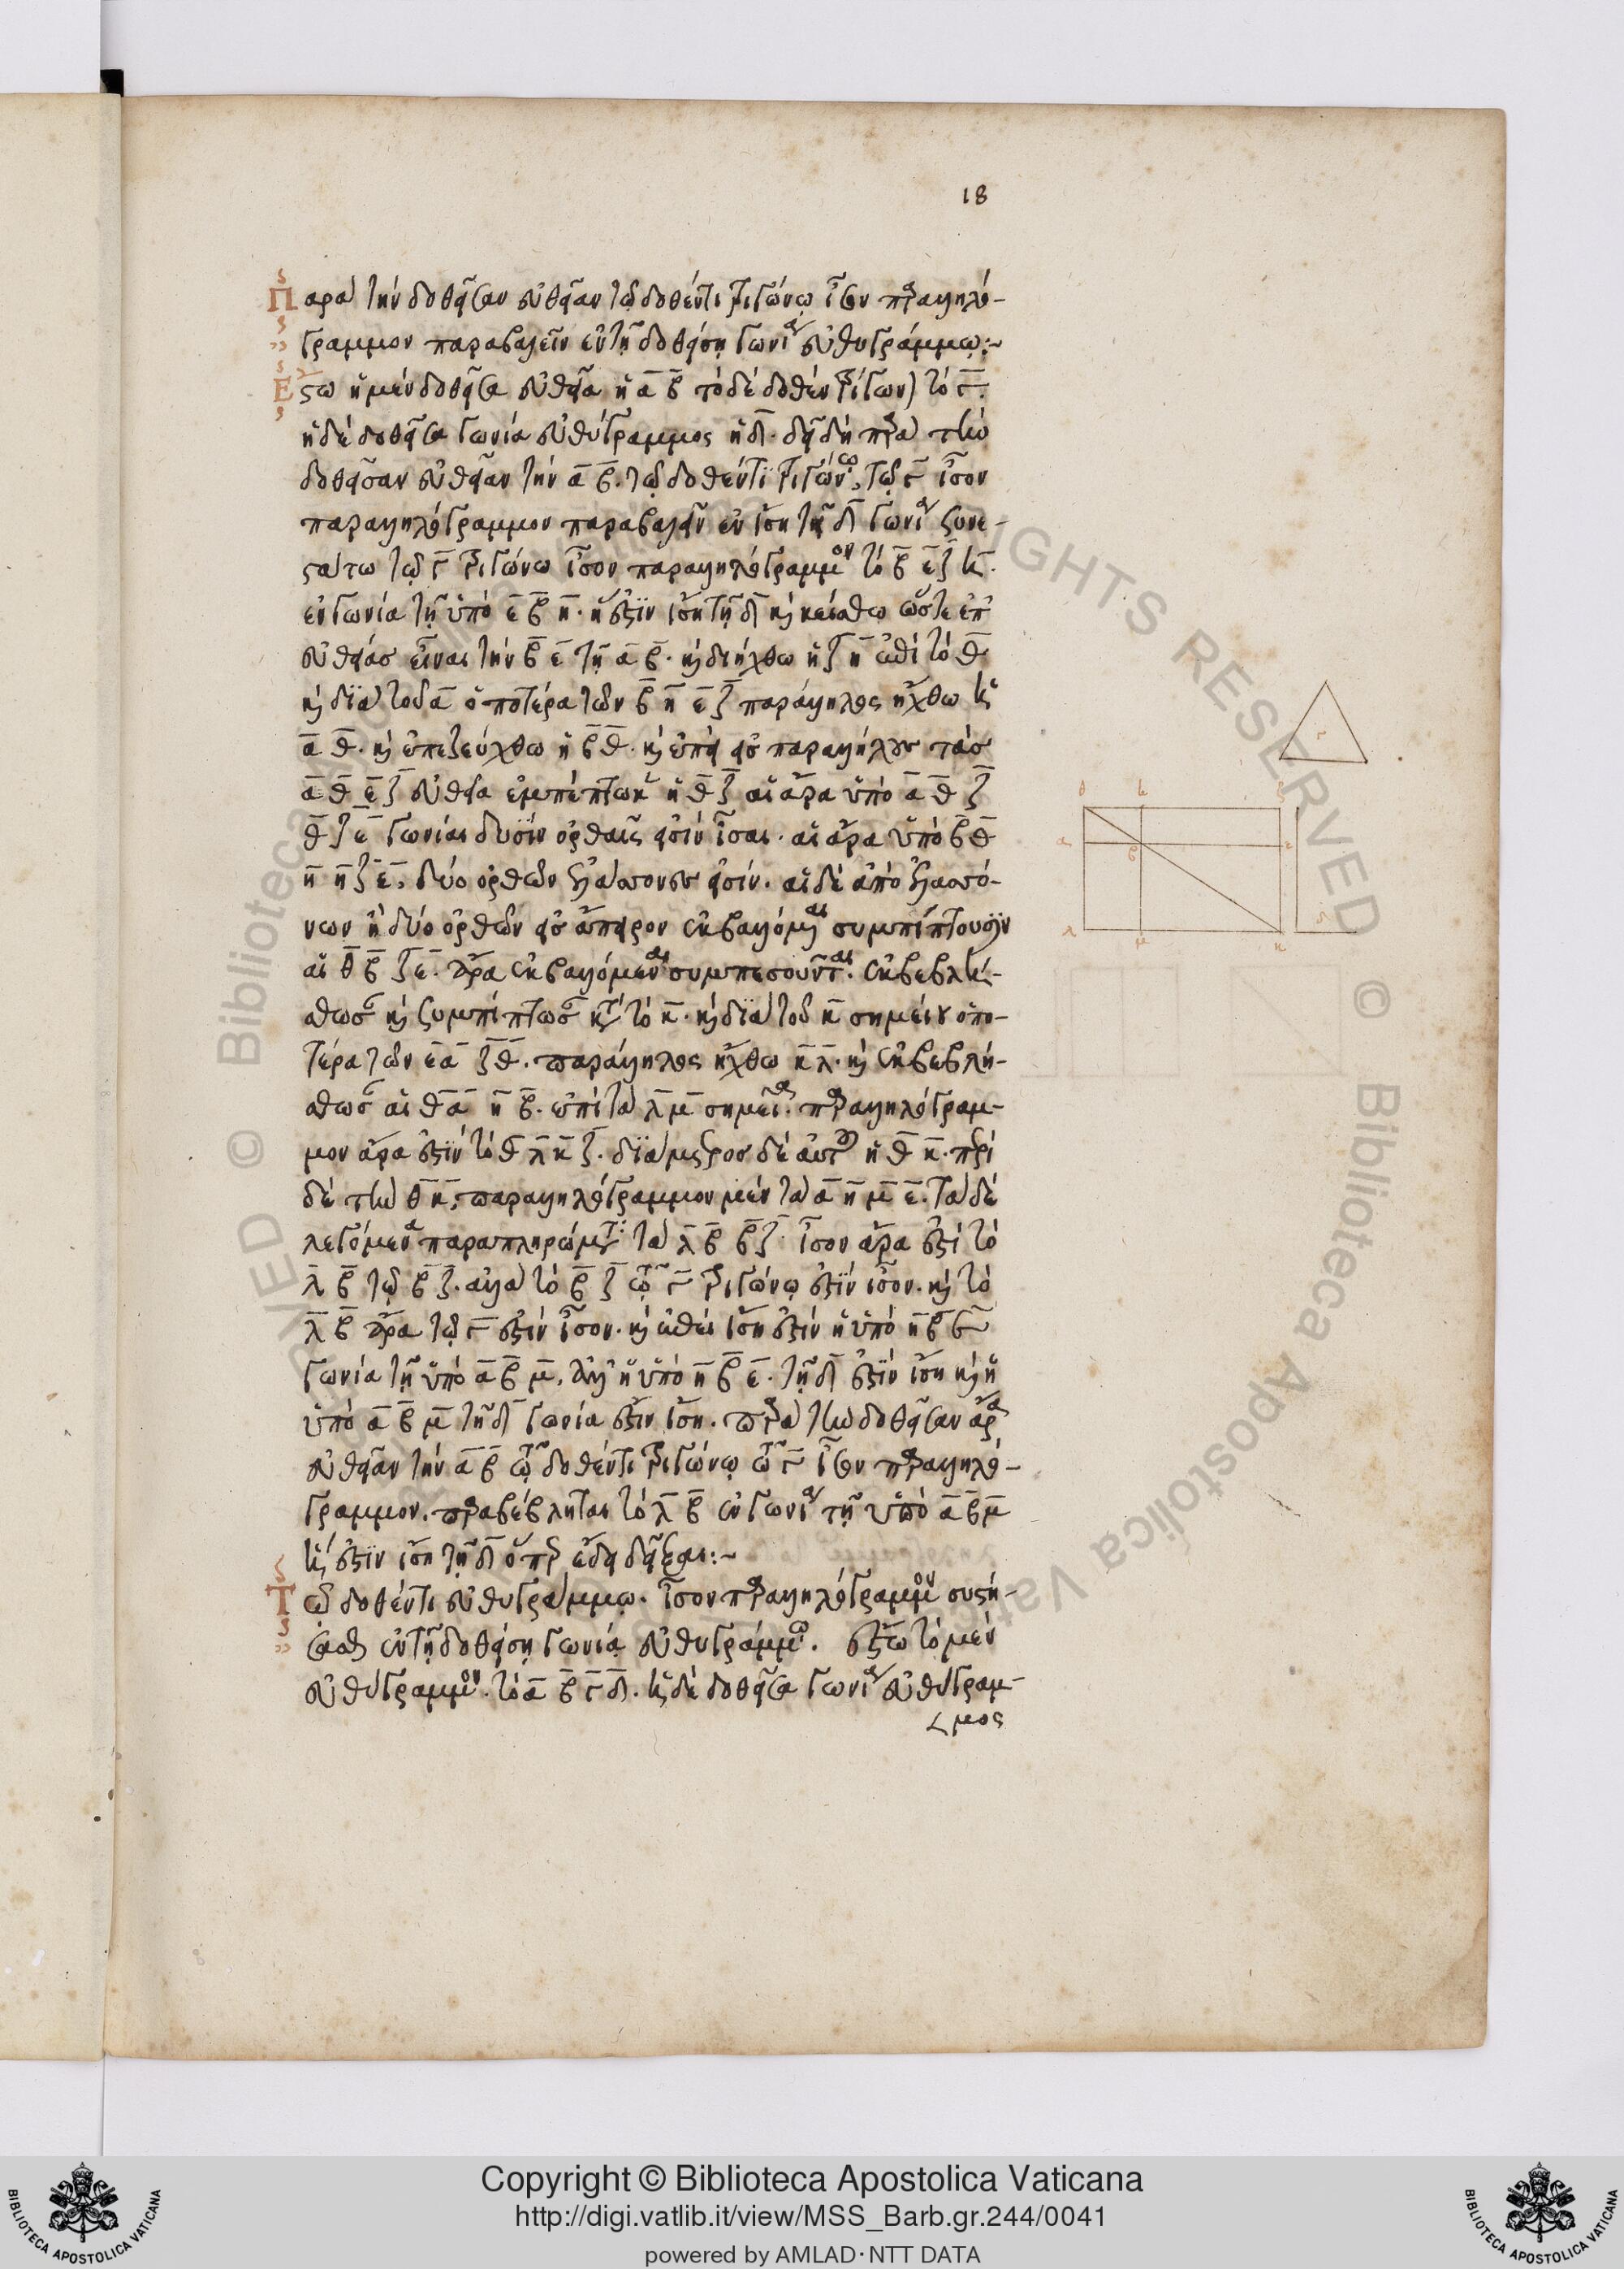 18
Παρὰ τὴν δοθεῖσαν εὐθεῖαν τῶ δοθέντι τριγώνω ἴσον παραλληλό-
γραμμον παραβαλεῖν ἐν τῆ δοθείση γωνία εὐθυγράμμω:~
Ἔστω ἡ μὲν δοθεῖσα εὐθεῖα ἡ α β τὸ δὲ δοθὲν τρίγωνον τὸ γ.
ἡ δὲ δοθεῖσα γωνία εὐθύγραμμος ἡ δ. δεῖ δὴ παρὰ τὴν
δοθεῖσαν εὐθεῖαν τὴν α β. τῶ δοθέντι τριγώνω, τῶ γ ἴσον
παραλληλόγραμμον παραβαλεῖν ἐν ἴση τῆ δ γωνία ξυνε-
στάτω τῶ γ τριγώνω ἴσον παραλληλόγραμμον τὸ β ε ζ η.
ἐν γωνία τῆ ὑπὸ ε β η. ἥ ἐστιν ἴση τῆ δ καὶ κείσθω ὥστε ἐπ'
εὐθείας εἶναι τὴν β ε τῆ α β. καὶ διήχθω ἡ ζ η ἐπὶ τὸ θ
καὶ διὰ τοῦ α ὁποτέρα τῶν β η ε ζ παράλληλος ἤχθω ἡ
α θ. καὶ ἐπεζεύχθω ἡ β θ. καὶ ἐπεὶ εἰς παραλλήλους τὰς
α θ ε ζ εὐθεῖα ἐμπέπτωκεν ἡ θ ζ αἱ ἄρα ὑπὸ α θ ζ
θ ζ ε γωνίαι δυσὶν ὀρθαῖς εἰσὶν ἴσαι. αἱ ἄρα ὑπὸ β θ
η η ζ ε, δύο ὀρθῶν ἐλάσσονες εἰσίν. αἱ δὲ ἀπὸ ἐλασσό-
νων ἢ δύο ὀρθῶν εἰς ἄπειρον ἐκβαλλόμεναι συμπίπτουσιν
αἱ θ β ζ ε. ἄρα ἐκβαλλόμεναι συμπεσοῦνται. ἐκβεβλή-
σθωσαν καὶ ξυμπιπτωσαν κατὰ τὸ κ. καὶ διὰ τοῦ κ σημείου ὁπο-
τέρα τῶν ε α ζ θ. παράλληλος ἤχθω κ λ. καὶ ἐκβεβλή-
σθωσαν αἱ θ α η β. ἐπὶ τὰ λ μ σημεῖα. παραλληλόγραμ-
μον ἄρα ἐστὶν τὸ θ λ κ ζ. διάμετρος δὲ αὐτοῦ ἡ θ κ. περὶ
δὲ τὴν θ κ, παραλληλόγραμμον μὲν τὰ α η μ ε. τὰ δὲ
λεγόμενα παραπληρώματα τὰ λ β β ζ. ἴσον ἄρα ἐστὶ τὸ
λ β τῶ β ζ. ἀλλὰ τὸ β ζ τῶ γ τριγώνω ἐστὶν ἴσον. καὶ τὸ
λ β ἄρα τῶ γ ἐστὶν ἴσον. καὶ ἐπεὶ ἴση ἐστὶν ἡ ὑπὸ η β ε
γωνία τῆ ὑπὸ α β μ. ἀλλ' ἡ ὑπὸ η β ε. τῆ δ ἐστὶν ἴση καὶ ἡ
ὑπὸ α β μ τῆ δ γωνία ἐστὶν ἴση. παρὰ τὴν δοθεῖσαν ἄρα
εὐθεῖαν τὴν α β τῶ δοθέντι τριγώνω τῶ γ ἴσον παραλληλό-
γραμμον. παραβέβληται τὸ λ β ἐν γωνία τῆ ὑπὸ α β μ
ἥ ἐστιν ἴση τῆ δ ὅπερ ἔδει δεῖξαι:~
Τῶ δοθέντι εὐθυγράμμω. ἴσον παραλληλόγραμμον συστή-
σασθαι ἐν τῆ δοθείση γωνία εὐθυγράμμω. ἔστω τὸ μὲν
εὐθύγραμμον. τὸ α β γ δ. ἡ δὲ δοθεῖσα γωνία εὐθύγραμ-
μος
Copyright © Biblioteca Apostolica Vaticana
http://digi.vatlib.it/view/MSS_Barb.gr.244/0041
powered by AMLAD·NTT DATA
BIBLIOTECA APOSTOLICA VATICANA
BIBLIOTECA APOSTOLICA VATICANA